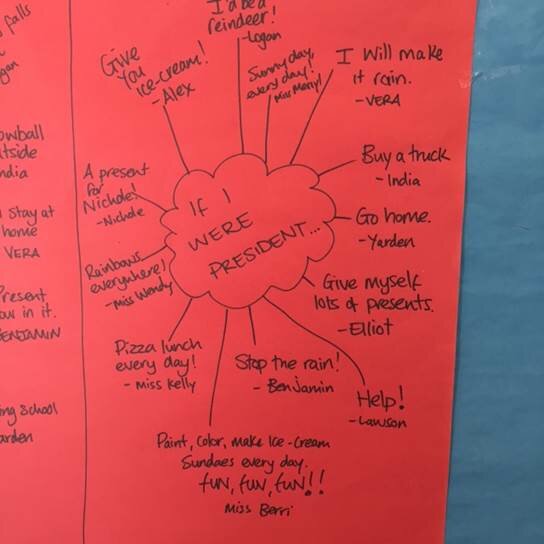 falls
gan
owball
tside
ndia
Stay at
home
VERA
resent
ow in it.
ENJAMIN
ing school
arden
I'd be a
reindeer!
-Logan
Give
You
ice-cream!
-Alex
Sunny day,
every day!
Miss Merryl
I Will make
it rain.
-VERA
Buy a truck
-India
A present
for
Nichole!
-Nichole
IF I
WERE
PRESIDENT...
Go home.
-Yarden
Rainbows
everywhere!
-Miss Wendy
Give myself
lots of presents.
-Elliot
Pizza lunch
every day!
- Miss Kelly
Stop the rain!
- Benjamin
Help!
-Lawson
Paint, Color, make Ice-Cream
Sundaes every day.
fUN, fUN, fUN!!
Miss Berri